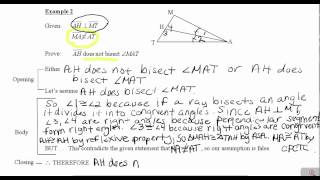 Example 2
Given: AH ⊥ MT
MA ≇ AT
M
H
3
4
1
2
T
A
Prove: AH does not bisect ∠MAT
Either AH does not bisect ∠MAT or AH does
Opening bisect ∠MAT
Let's assume AH does bisect ∠MAT
So ∠1≅∠2 because if a ray bisects an angle
it divides it into congruent angles. Since AH ⊥ MT
∠3, ∠4 are right angles because perpendicular segments
Body form right angles. ∠3≅∠4 because right angles are congruent
AH≅AH by reflexive property, so △MAH≅△TAH by ASA. MA≅AT by
CPCTC.
BUT This contradicts the given statement that MA≇AT, so our assumption is false.
Closing THEREFORE AH does n